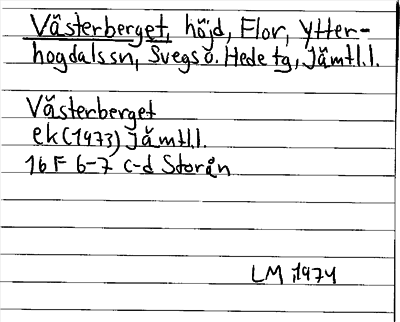 Västerberget, höjd, Flor, Ytter-
hogdalssn, Svegs o. Hede tg, Jämtl.l.
Västerberget
ek (1973) Jämtl.l.
16 F 6-7 c-d Storån
LM 1974